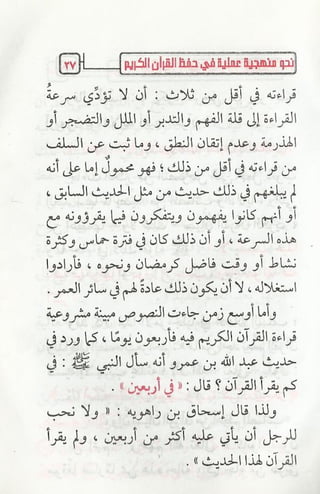 نحو منهجية عملية في حفظ القرآن الكريم
٢٧
قراءته في أقل من ثلاث : أن لا تؤدِّي سرعةُ
القراءة إلى قلة الفهم والتدبر أو الملل والتضجر أو
الهذرمة وعدم إتقان النطق ، وما ثبت عن السلف
من قراءته في أقل من ذلك ؛ فهو محمولٌ إما على أنه
لم يبلغهم في ذلك حديث من مثل الحديث السابق ،
أو أنهم كانوا يفهمون ويتفكرون فيما يقرؤونه مع
هذه السرعة ، أو أن ذلك كان في فترة حماس وكثرة
نشاط أو وقت فاضل كرمضان ونحوه ، فأرادوا
استغلاله ، لا أن يكون ذلك عادةً لهم في سائر العمر .
وأما أوسع زمن جاءت النصوص مبينة مشروعية
قراءة القرآن الكريم فيه فأربعون يومًا ، كما ورد في
حديث عبد الله بن عمرو أنه سأل النبي ﷺ : في
كم يقرأ القرآن ؟ قال : « في أربعين » .
ولذا قال إسحاق بن راهويه : « ولا نحب
للرجل أن يأتي عليه أكثر من أربعين ، ولم يقرأ
القرآن لهذا الحديث » .